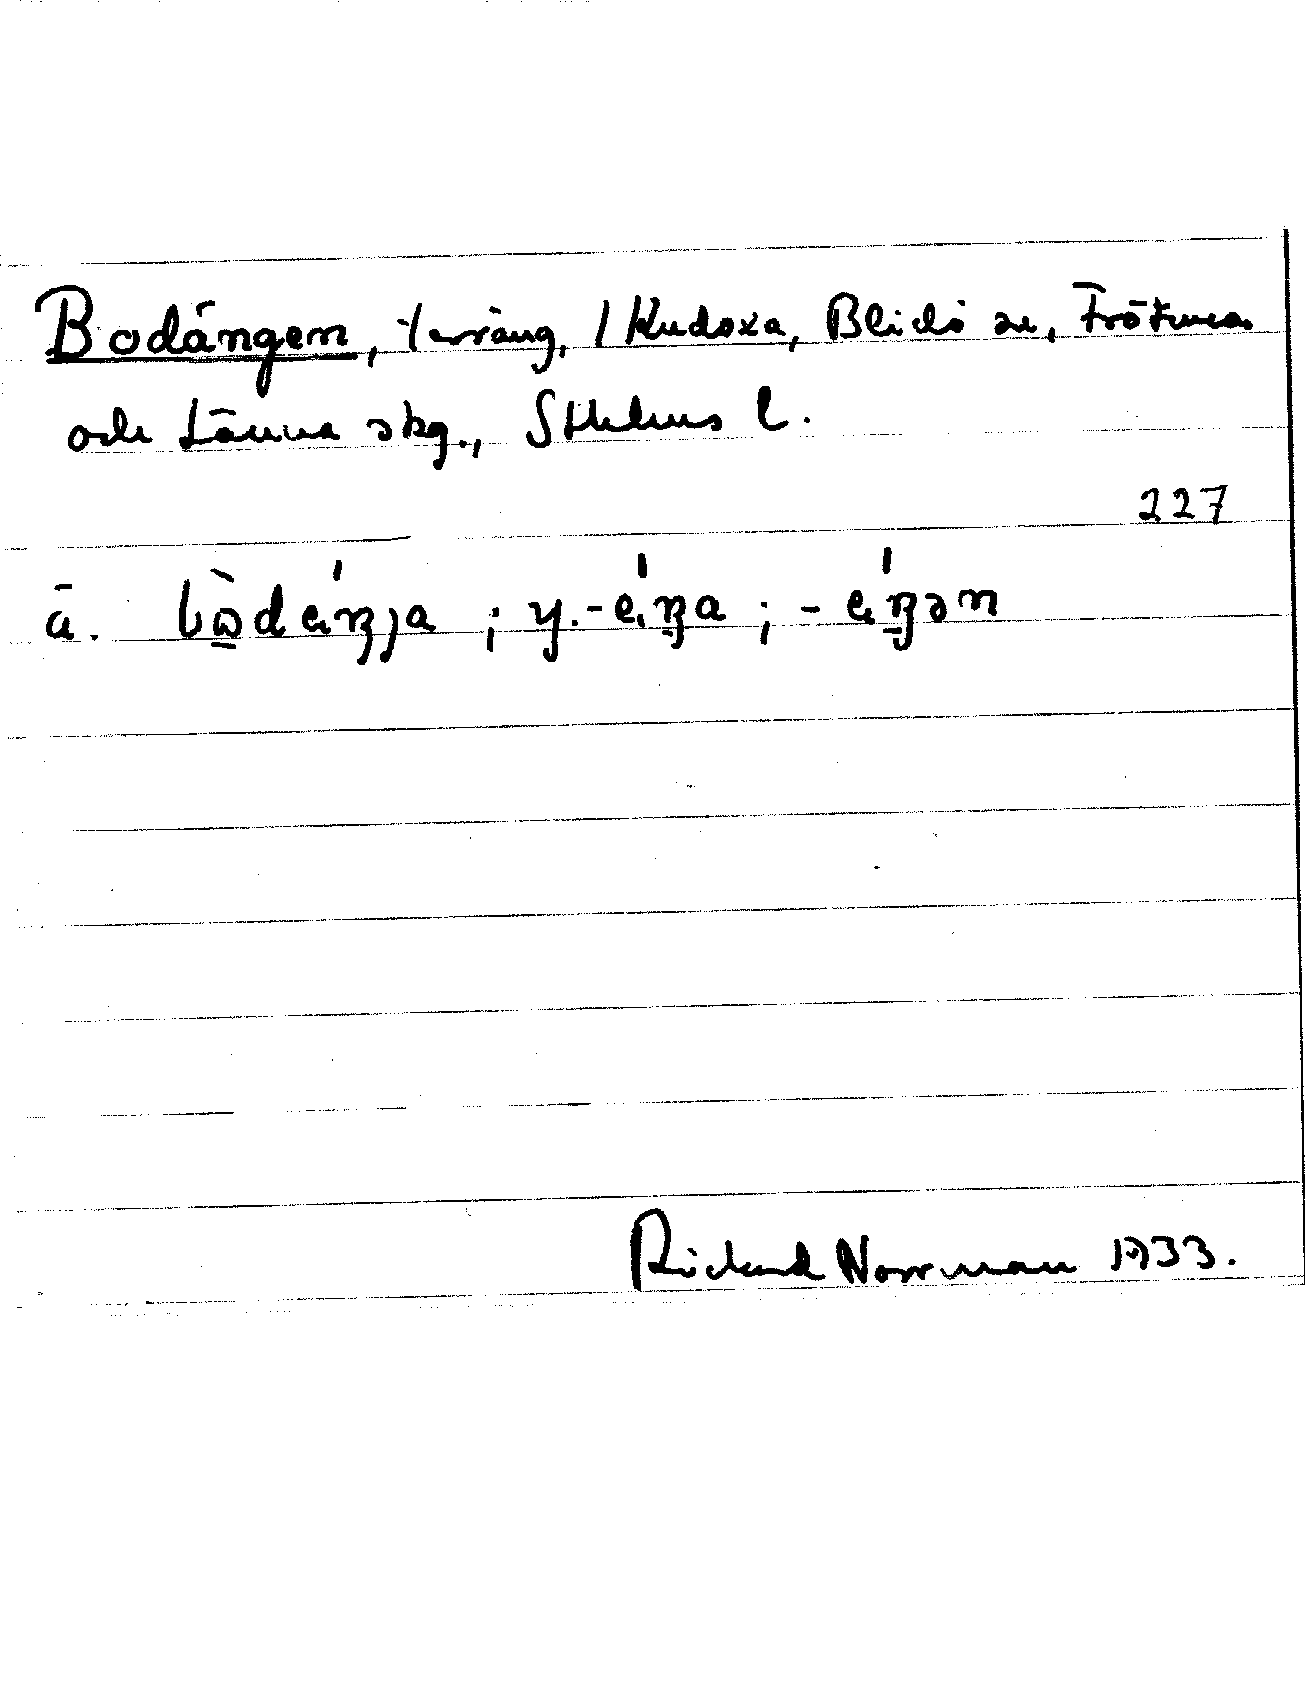 Bodängen, terräng, / Kudoxa, Blidö sn, Frötuna
och Länna skg., Sthlms l.
227
ä. bωdeŋja ; y. -eŋa ; -eŋən
Rickard Norrman 1933.